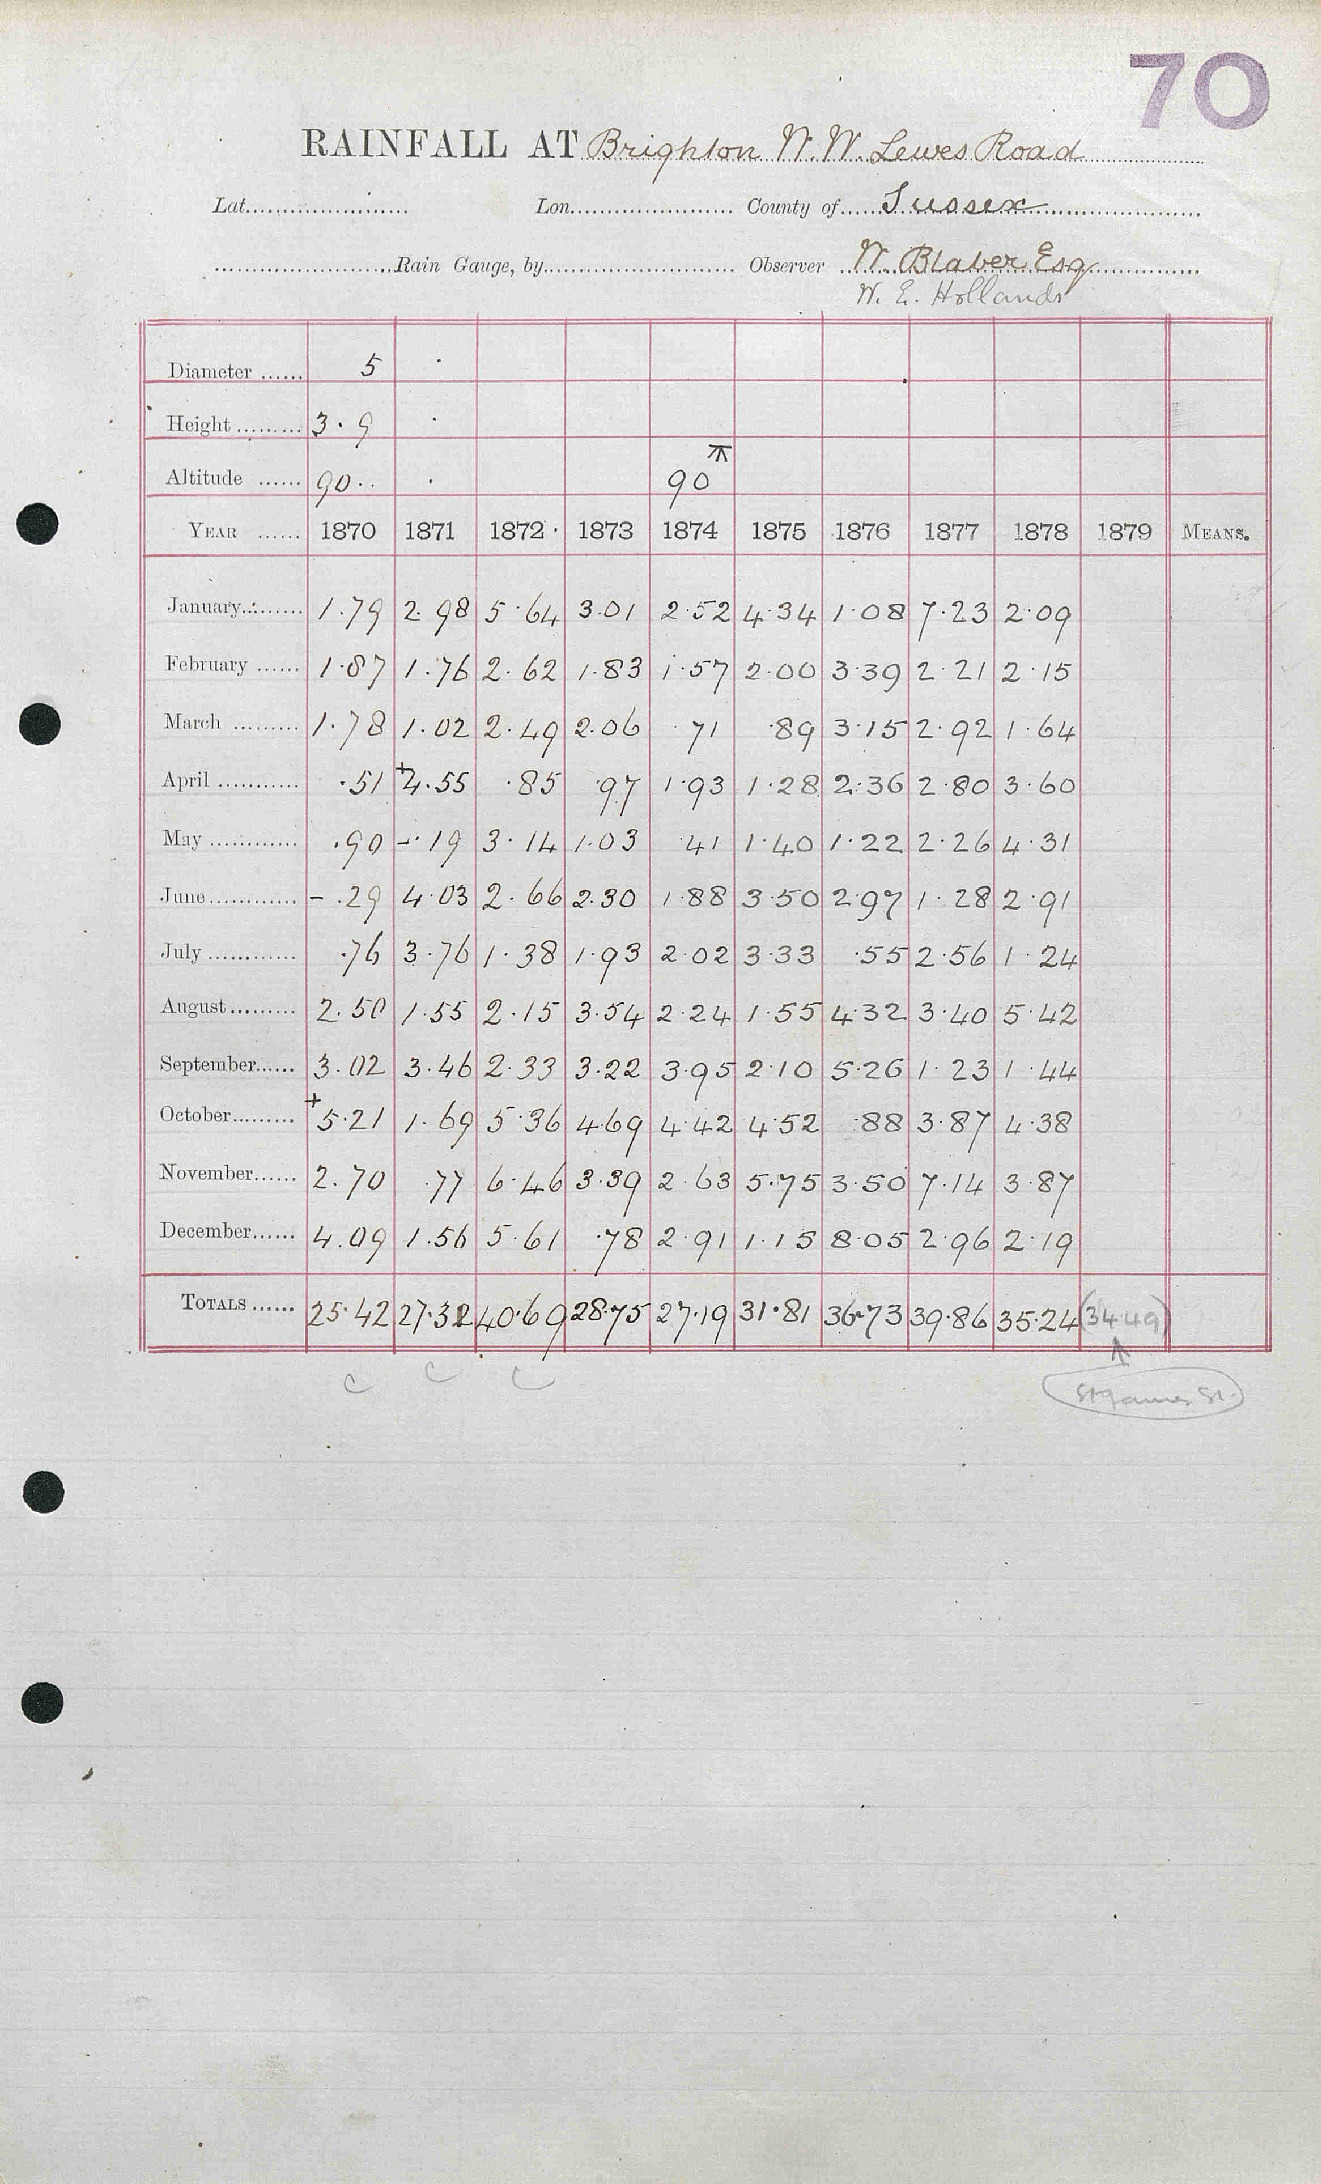 70
RAINFALL AT Brighton W.W. Lewes Road
Lat. Lon. County of Sussex
Rain Gauge, by Observer W. Blaber Esq
W. E. Hollands
Diameter 5
Height 3.9
Altitude 90 90
YEAR 1870 1871 1872 1873 1874 1875 1876 1877 1878 1879 MEANS.
January 1.79 2.98 5.64 3.01 2.52 4.34 1.08 7.23 2.09
February 1.87 1.76 2.62 1.83 1.57 2.00 3.39 2.21 2.15
March 1.78 1.02 2.49 2.06 .71 .89 3.15 2.92 1.64
April .51 +4.55 .85 .97 1.93 1.28 2.36 2.80 3.60
May .90 -.19 3.14 1.03 .41 1.40 1.22 2.26 4.31
June -.29 4.03 2.66 2.30 1.88 3.50 2.97 1.28 2.91
July .76 3.76 1.38 1.93 2.02 3.33 .55 2.56 1.24
August 2.50 1.55 2.15 3.54 2.24 1.55 4.32 3.40 5.42
September 3.02 3.46 2.33 3.22 3.95 2.10 5.26 1.23 1.44
October +5.21 1.69 5.36 4.69 4.42 4.52 .88 3.87 4.38
November 2.70 .77 6.46 3.39 2.63 5.75 3.50 7.14 3.87
December 4.09 1.56 5.61 .78 2.91 1.15 8.05 2.96 2.19
TOTALS 25.42 27.32 40.69 28.75 27.19 31.81 36.73 39.86 35.24 (34.49)
C C C
St James St.